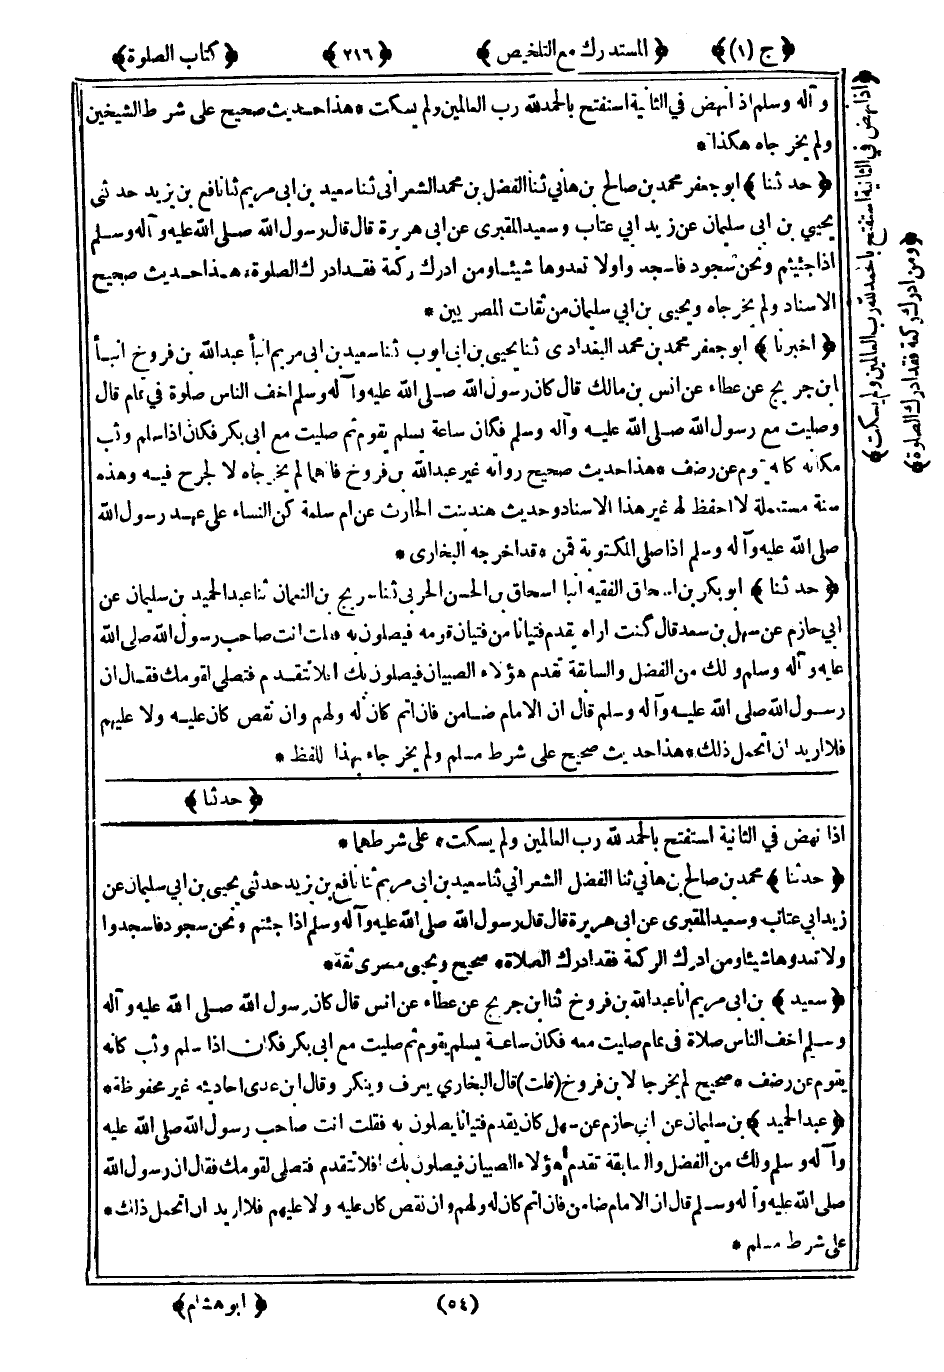 ﴿ ج (١) ﴾ ﴿ المستدرك مع التلخيص ﴾ ﴿ ٢١٦ ﴾ ﴿ كتاب الصلوة ﴾
وآله وسلم اذا نهض في الثانية استفتح بالحمد لله رب العالمين ولم يسكت * هذا حديث صحيح على شرط الشيخين
ولم يخرجاه هكذا *
﴿ حدثنا ﴾ ابو جعفر محمد بن صالح بن هاني ثنا الفضل بن محمد الشعراني ثنا سعيد بن ابي مريم ثنا نافع بن يزيد حدثني
يحيي بن ابي سليمان عن زيد ابي عتاب وسعيد المقبرى عن ابى هريرة قال قال رسول الله صلى الله عليه وآله وسلم
اذا جئتم ونحن سجود فاسجدوا ولا تعدوها شيئا ومن ادرك ركعة فقد ادرك الصلوة * هذا حديث صحيح
الاسناد ولم يخرجاه ويحيى بن ابي سليمان من ثقات المصريين *
﴿ اخبرنا ﴾ ابو جعفر محمد بن محمد البغدادى ثنا يحيي بن ايوب ثنا سعيد بن ابى مريم انبأ عبد الله بن فروخ انبأ
ابن جريج عن عطاء عن انس بن مالك قال كان رسول الله صلى الله عليه وآله وسلم اخف الناس صلوة في تمام قال
وصليت مع رسول الله صلى الله عليه وآله وسلم فكان ساعة يسلم يقوم ثم صليت مع ابى بكر فكان اذا سلم وثب
مكانه كانه يقوم عن رضف * هذا حديث صحيح رواته غير عبد الله بن فروخ فانهما لم يخرجاه لا لجرح فيه وهذه
سنة مستعملة لا احفظ لها غير هذا الاسناد وحديث هند بنت الحارث عن ام سلمة كن النساء على عهد رسول الله
صلى الله عليه وآله وسلم اذا صلى المكتوبة قمن * قد اخرجه البخارى *
﴿ حدثنا ﴾ ابو بكر بن اسحاق الفقيه انبأ اسحاق بن الحسن الحربى ثنا سريج بن النعمان ثنا عبد الحميد بن سليمان عن
ابي حازم عن سهل بن سعد قال كنت اراه يقدم فتيانا من فتيان قومه فيصلون به فقلت انت صاحب رسول الله صلى الله
عليه وآله وسلم ولك من الفضل والسابقة تقدم هؤلاء الصبيان فيصلون بك افلا تتقدم فتصلي لقومك فقال ان
رسول الله صلى الله عليه وآله وسلم قال ان الامام ضامن فان اتم كان له ولهم وان نقص كان عليه ولا عليهم
فلا اريد ان اتحمل ذلك * هذا حديث صحيح على شرط مسلم ولم يخرجاه بهذا اللفظ *
﴿ حدثنا ﴾
اذا نهض في الثانية استفتح بالحمد لله رب العالمين ولم يسكت * على شرطهما *
﴿ حدثنا ﴾ محمد بن صالح بن هاني ثنا الفضل الشعراني ثنا سعيد بن ابى مريم ثنا نافع بن يزيد حدثني يحيى بن ابي سليمان عن
زيد ابي عتاب وسعيد المقبرى عن ابى هريرة قال قال رسول الله صلى الله عليه وآله وسلم اذا جئتم ونحن سجود فاسجدوا
ولا تعدوها شيئا ومن ادرك الركعة فقد ادرك الصلاة * صحيح ويحيى مصرى ثقة *
﴿ سعيد ﴾ بن ابى مريم انا عبد الله بن فروخ ثنا ابن جريج عن عطاء عن انس قال كان رسول الله صلى الله عليه وآله
وسلم اخف الناس صلاة فى تمام صليت معه فكان ساعة يسلم يقوم ثم صليت مع ابى بكر فكان اذا سلم وثب كانه
يقوم عن رضف * صحيح لم يخرجا لابن فروخ (قلت) قال البخاري يعرف وينكر وقال ابن عدى احاديثه غير محفوظة *
﴿ عبد الحميد ﴾ بن سليمان عن ابي حازم عن سهل كان يقدم فتيانا يصلون به فقلت انت صاحب رسول الله صلى الله عليه
وآله وسلم ولك من الفضل والسابقة تقدم هؤلاء الصبيان فيصلون بك افلا تتقدم فتصلى لقومك فقال ان رسول الله
صلى الله عليه وآله وسلم قال ان الامام ضامن فان اتم كان له ولهم وان نقص كان عليه ولا عليهم فلا اريد ان اتحمل ذلك *
على شرط مسلم *
﴿ اذا نهض في الثانية استفتح بالحمد لله رب العالمين ولم يسكت ﴾
﴿ ومن ادرك ركعة فقد ادرك الصلوة ﴾
(٥٤) ﴿ ابو هشام ﴾